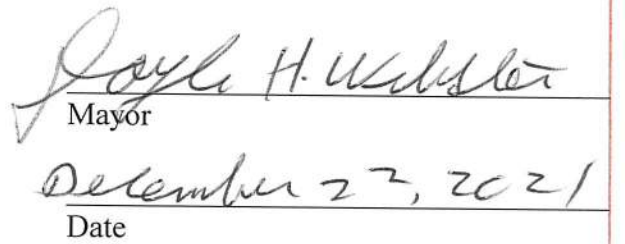 Doyle H. Webster
Mayor
December 22, 2021
Date